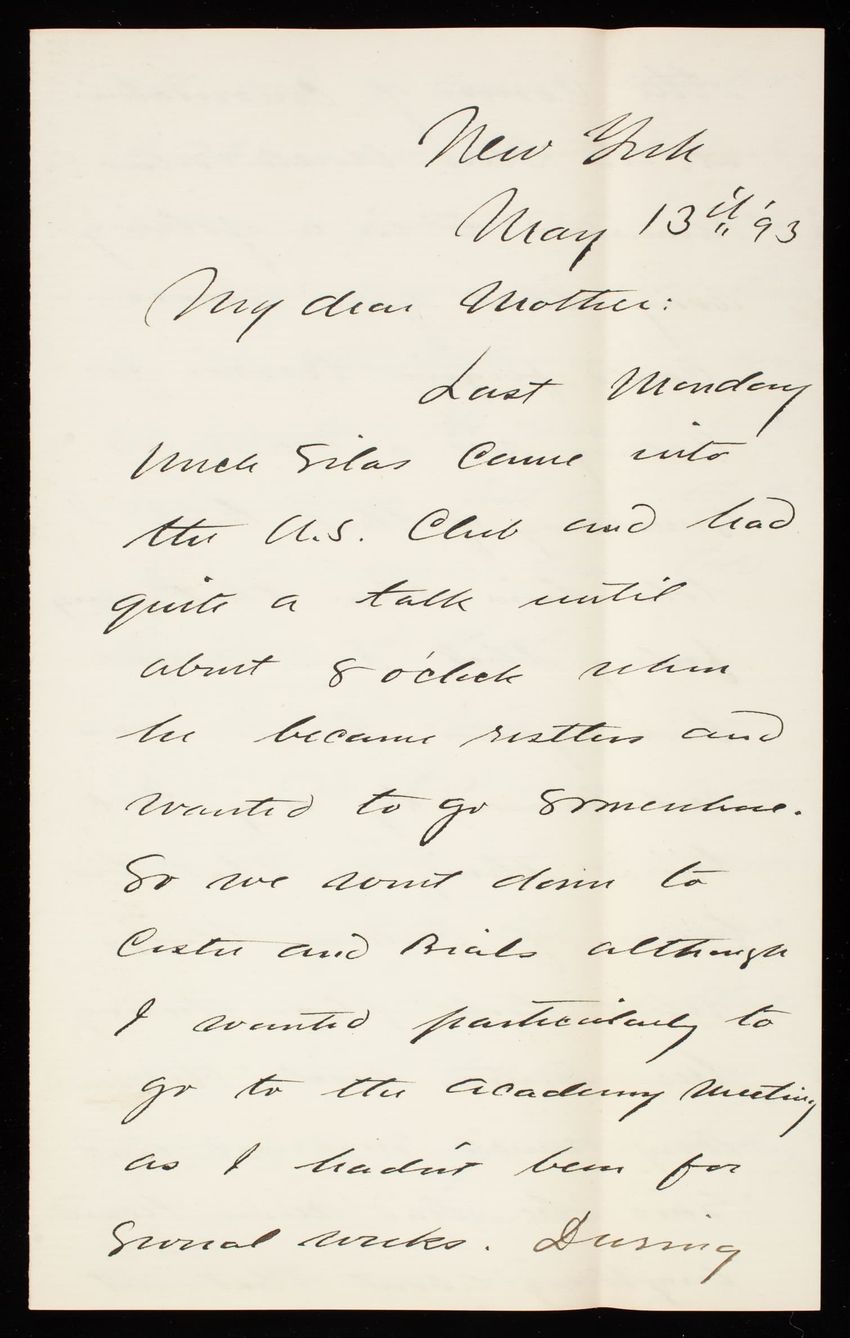 New York
May 13th '93
My dear Mother:
Last Monday
Uncle Silas came into
the U.S. Club and had
quite a talk until
about 8 o'clock when
he became restless and
wanted to go somewhere.
So we went down to
Coster and Bials although
I wanted particularly to
go to the Academy Meeting
as I hadn't been for
several weeks. During